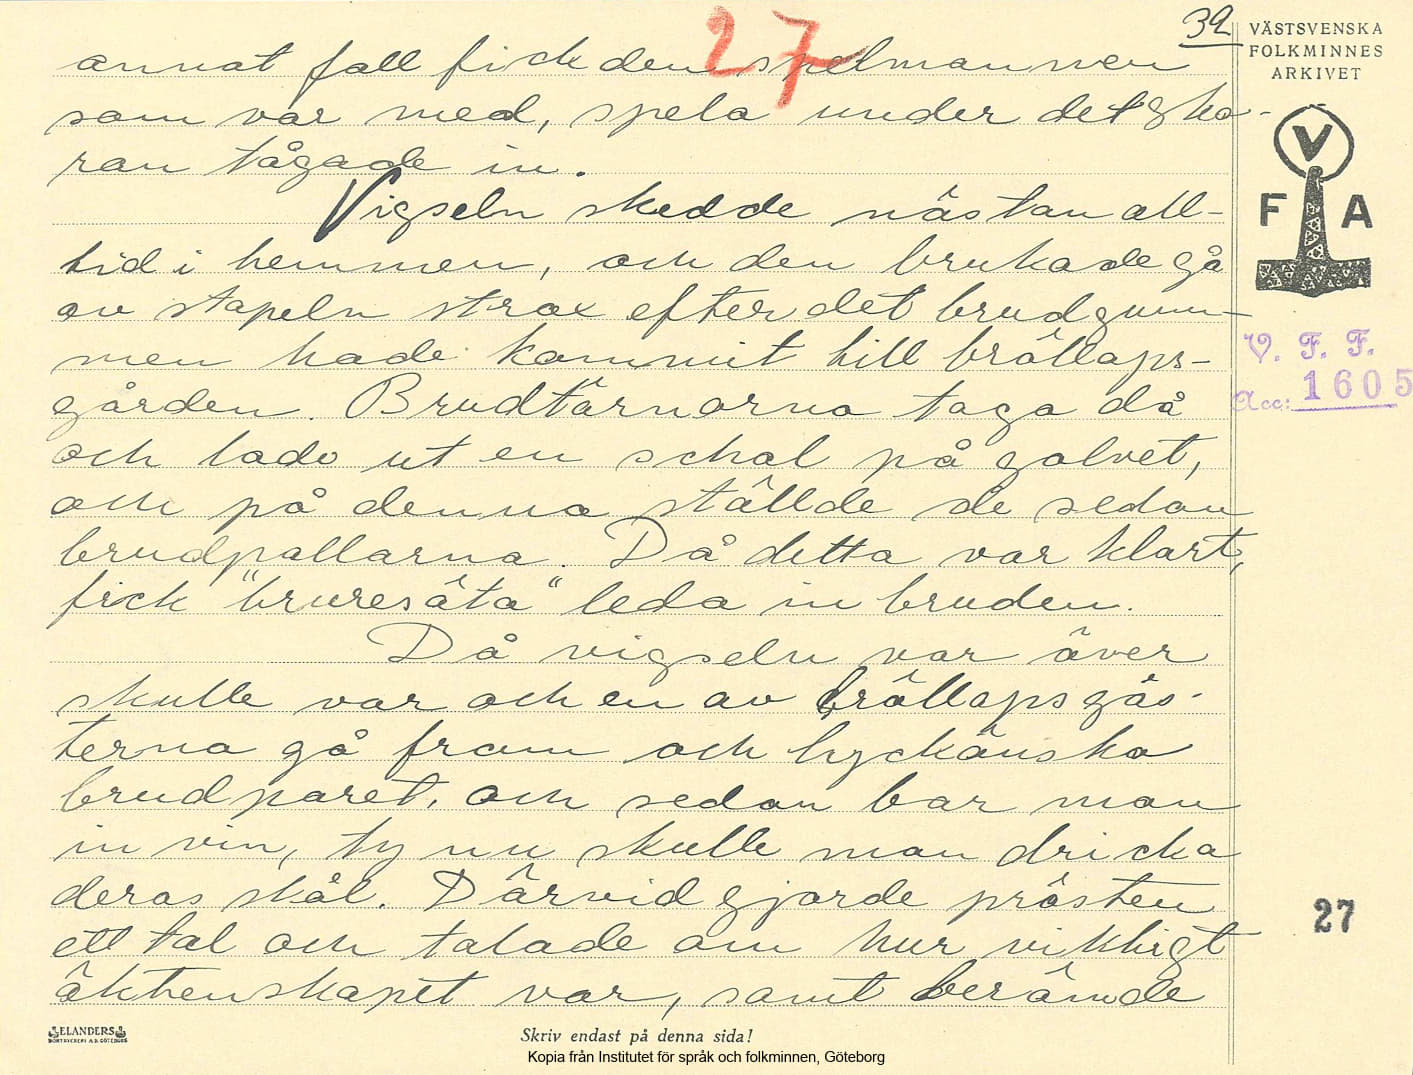 27
39
VÄSTSVENSKA
FOLKMINNES
ARKIVET
annat fall fick den spelmannen
som var med, spela under det ska-
ran tågade in.
Vigseln skedde nästan all-
tid i hemmen, och den brukade gå
av stapeln strax efter det brudgum-
men hade kommit till bröllops-
gården. Brudtärnorna togo då
och lade ut en schal på golvet,
och på denna ställde de sedan
brudpallarna. Då detta var klart,
fick "bruresäta" leda in bruden.
Då vigseln var över
skulle var och en av bröllopsgäs-
terna gå fram och lyckönska
brudparet, och sedan bar man
in vin, ty nu skulle man dricka
deras skål. Därvid gjorde prästen
ett tal och talade om hur viktigt
äktenskapet var, samt berömde
V
F A
V. F. F.
Acc: 1605
27
ELANDERS
BOKTRYCKERI A.B. GÖTEBORG
Skriv endast på denna sida!
Kopia från Institutet för språk och folkminnen, Göteborg